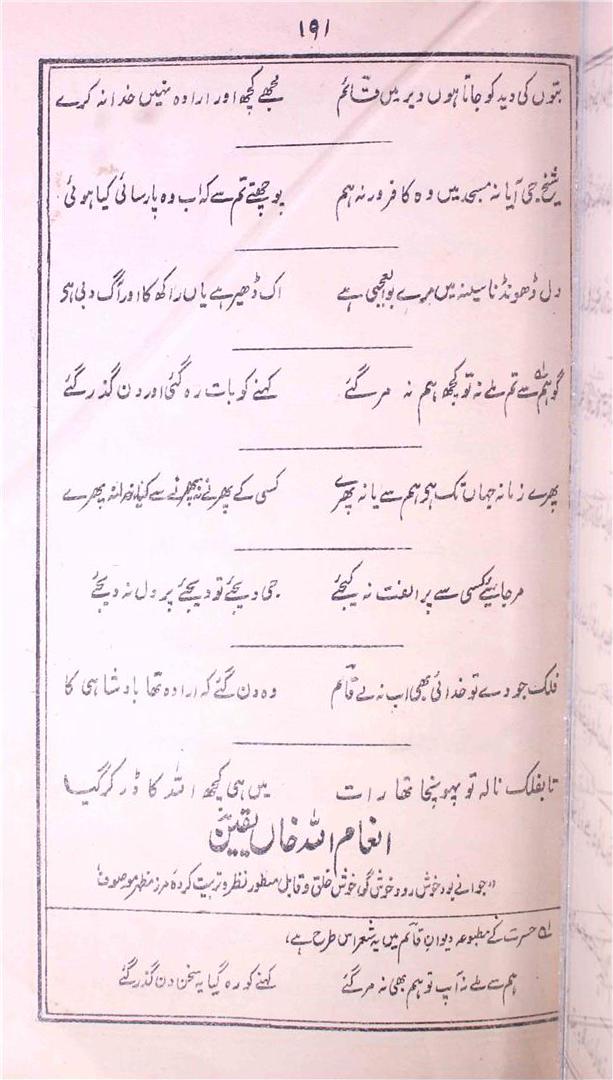 ۱۹۱
بتوں کی دید کو جاتا ہوں دیر میں قائم مجھے کچھ اور ارادہ نہیں خدا نہ کرے
شیخ جی آیا نہ مسجد میں وہ کافر ورنہ ہم پوچھتے تم سے کہ اب وہ پارسائی کیا ہوئی
دل ڈھونڈنا سینہ میں مرے بوالعجبی ہے اک ڈھیر ہے یاں راکھ کا اور آگ دبی ہی
گو ہم سے تم ملے نہ تو کچھ ہم نہ مر گئے کہنے کو بات رہ گئی اور دن گذر گئے
پھرے زمانہ جہاں تک ہی ہم سے یا نہ پھرے کسی کے پھرنے نہ پھرنے سے کیا، خدا نہ پھرے
مر جائیے کسی سے پر الفت نہ کیجئے جی دیجئے تو دیجئے پر دل نہ دیجئے
فلک جو دے تو خدائی بھی اب نہ لے قائم وہ دن گئے کہ ارادہ تھا بادشاہی کا
تا بفلک نالہ تو پہونچا تھا رات میں ہی کچھ اللہ کا ڈر کر گیا
انعام اللہ خاں یقین
"جوانے بود خوش رو و خوش گو، خوش خلق و قابل منظور نظر و تربیت کردہ مرزا مظہر موصوف"
لہ حسرت کے مطبوعہ دیوان قائم میں یہ شعر اس طرح ہے،
ہم سے ملے نہ آپ تو ہم بھی نہ مر گئے کہنے کو رہ گیا یہ سخن دن گذر گئے